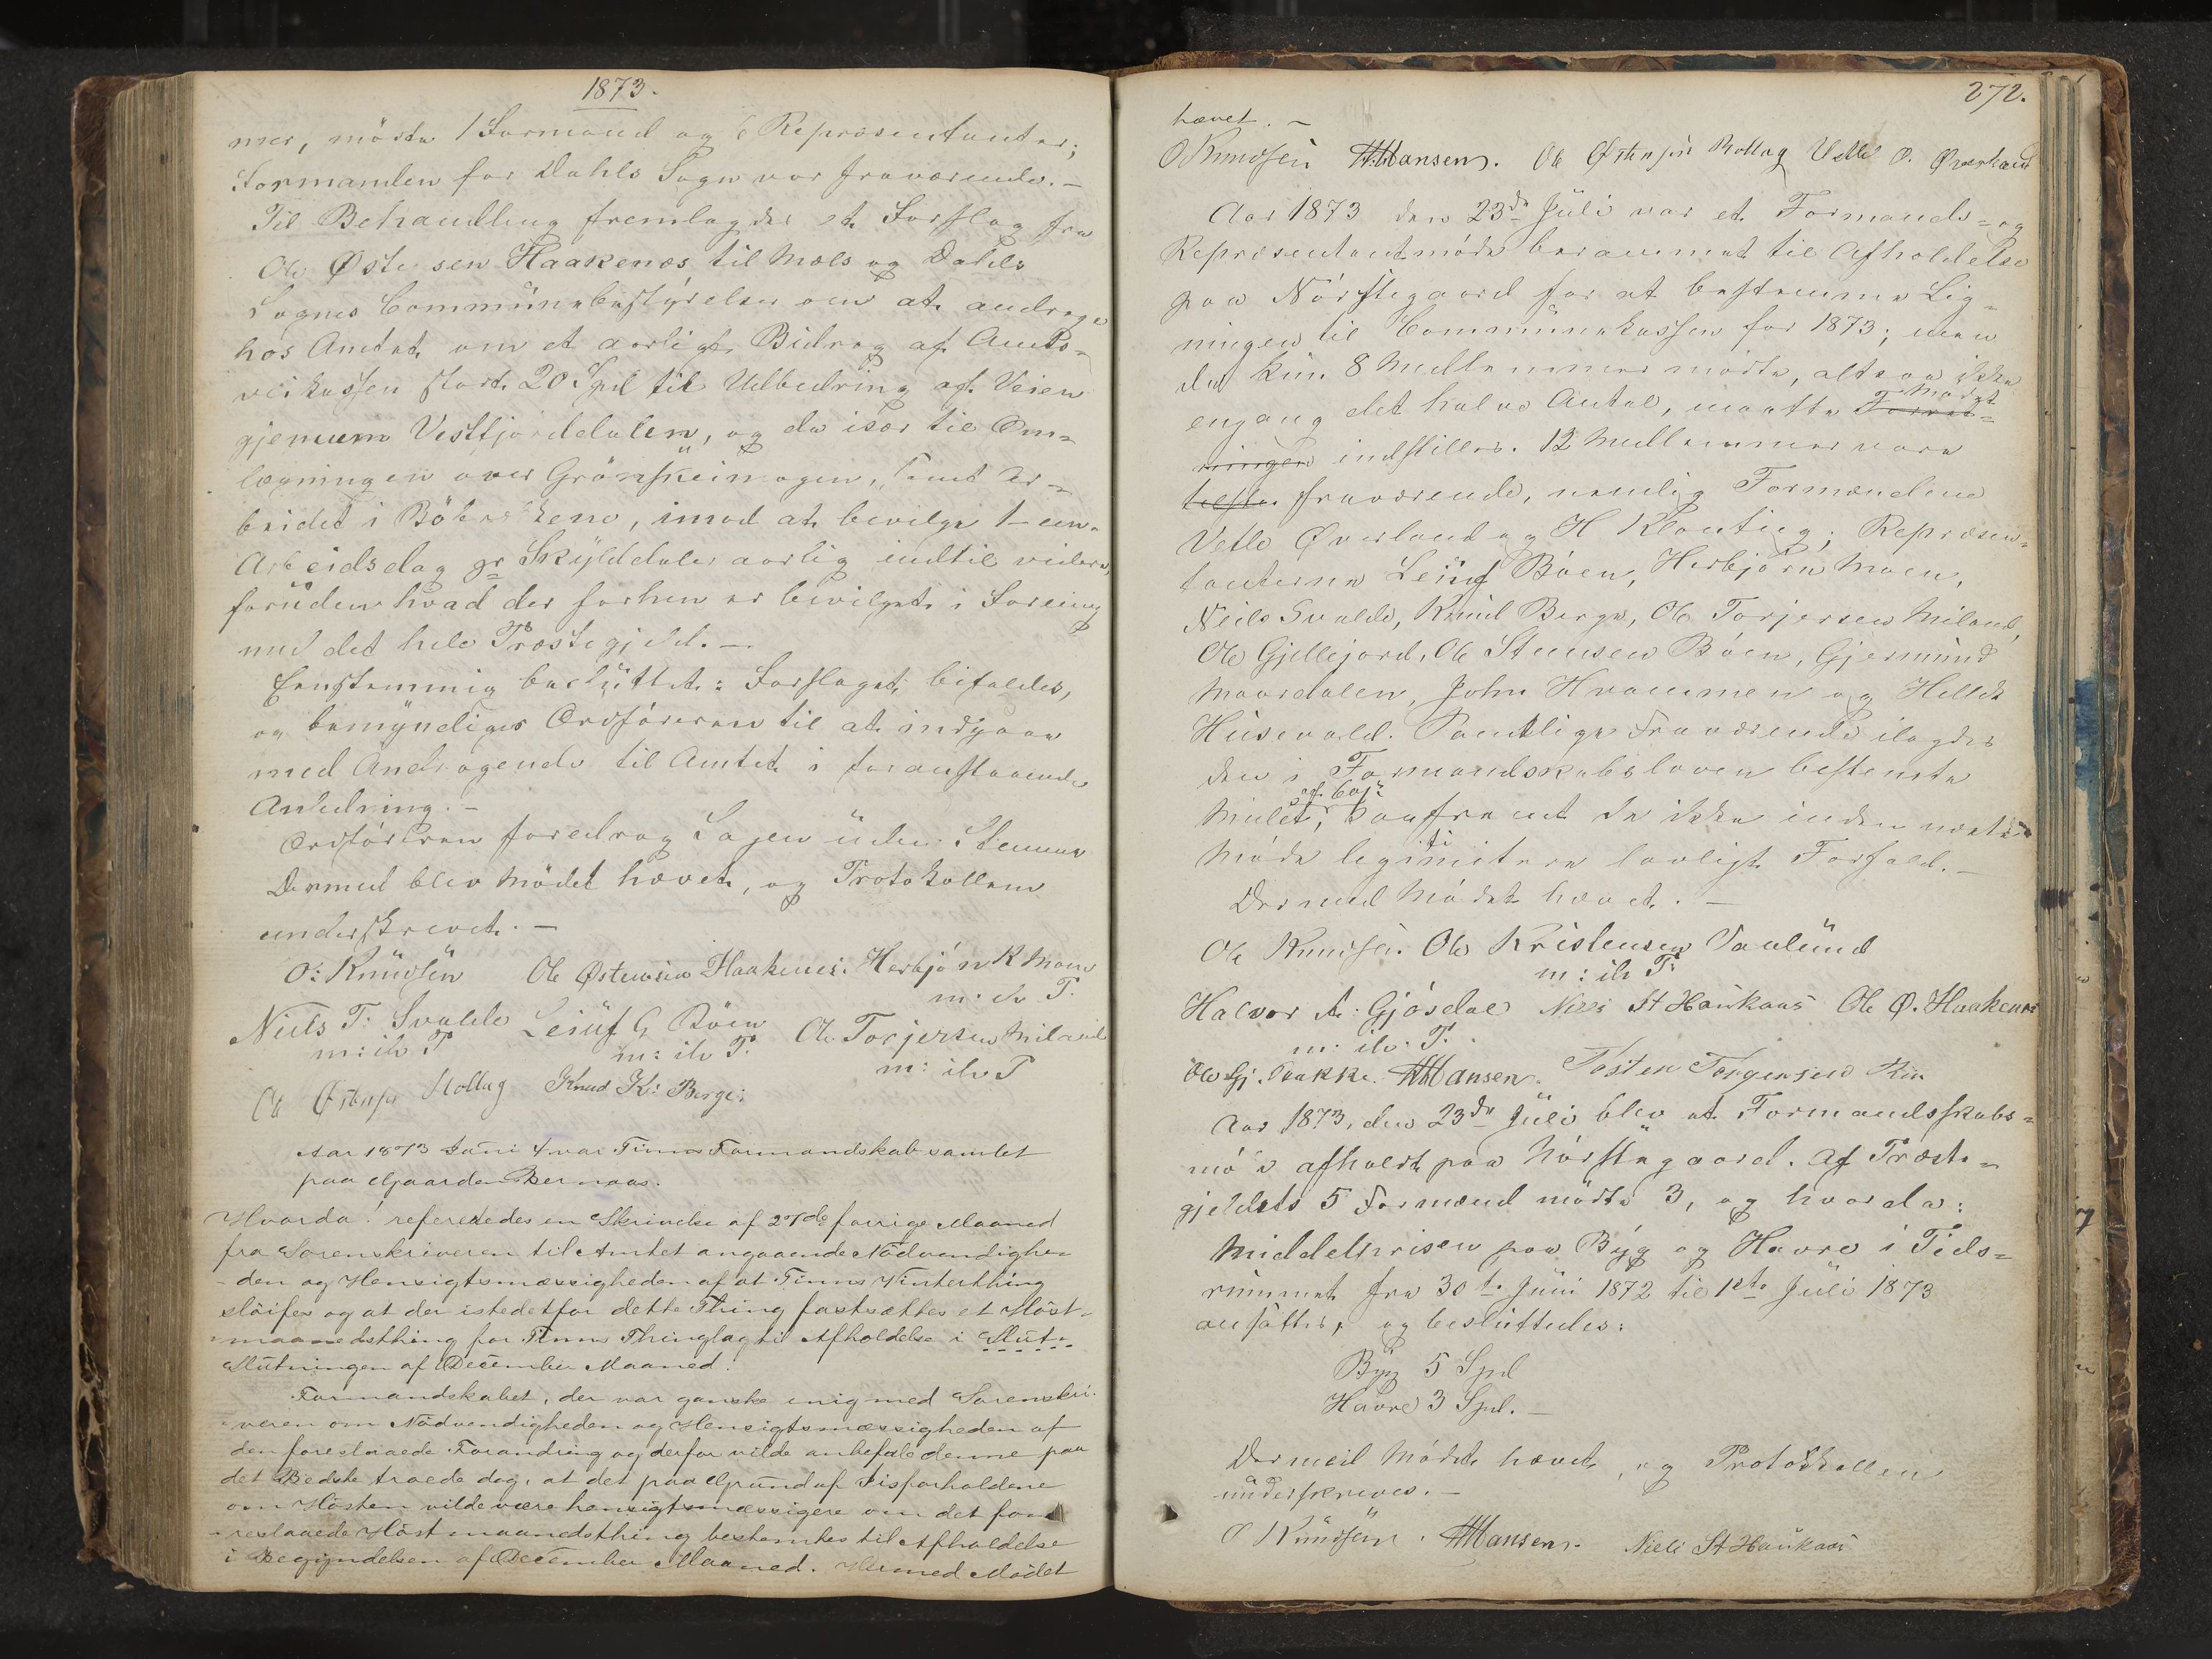 1873.
mer, mødte 1 Formand og 6 Repræsentanter;
Formanden for Dahls Sogn var fraværende. –
Til Behandling fremlagdes et Forslag fra
Ole Østensen Haakenæs til Mæls og Dahls
Sognes Communebestÿrelse om at andrage
hos Amtet om et aarligt Bidrag af Amts-
veikassen stort 20 Spd til Udbedring af Veien
gjennem Vestfjorddalen, og da især til Om-
lægningen over Grønskeimogen, samt Ar-
beidet i, imod at bevilge 1 – een
Arbeidsdag pr Skÿlddaler aarlig indtil videre,
forüden hvad der forhen er bevilget i Forening
med det hele Præstegjeld. –
Eenstemmig beslüttet: Forslaget bifaldes,
og bemÿndiges Ordføreren til at indgaae
med Andragende til Amtet i foranstaaende
Anledning. –
Ordføreren foredrog Sagen üden Stemme
Dermed blev Mødet hævet, og Protokollen
underskrevet. –
O: Knüdsen Ole Østensen Haakenes: Herbjørn K Moen
m: ih P.
Niels T. Svadde Leiüf G Böen Ole Torjersen Miland
m: ih P m: ih P. m: ih P
Ole Østensen Rollag Knud K: Berge:
Aar 1873 Juni 4 var Tinns Formandskab samlet
paa Gaarden Bernaas.
Hvorda! refereredes en Skrivelse af 27de forrige Maaned
fra Sorenskriveren til Amtet angaaende Nødvendighe-
den og Hensigtsmæssigheden af at Tinns Vinterthing
sløifes og at der istedetfor dette Thing fastsættes et Høst-
maanedsthing for Tinns Thinglag til Afholdelse i Slut-
Slutningen af December Maaned.
Formandskabet, der var ganske enig med Sorenskri-
veren om Nødvendigheden og Hensigtsmæssigheden af
den foreslaaede Forandring og derfor vilde anbefale denne paa
det Bedste troede dog, at det paa Grund af Iisforholdene
om Høsten vilde være hensigtsmæssigere om det fore-
reslaaede Høstmaanedsthing bestemtes til Afholdelse
i Begyndelsen af December Maaned. Hermed Mödet
272.
hævet. –
O Knudsen HHansen. Ole Østensen Rollag Vetle O. Øverland
Aar 1873 den 23de Jüli var et Formands- og
Repræsentantmøde berammet til Afholdelse
paa Nørstegaard for at bestemme Lig-
ningen til Communekassen for 1873; men
da kün 8 Medlemmer mødte, altsaa ikke
engang det halve Antal, maatte Forret- Mødet
ningen indstilles. 12 Medlemmer vare
fraværende, nemlig Formændene
Vetle Øverland og H Klonteig; Repræsen-
tanterne Leiüf Böen, Herbjørn Moen,
Neils Svadde, Knüd Berge, Ole Torjersen Miland,
Ole Gjellejord, Ole Stensen Böen, Gjermünd
Maardalen, John Hvammen og Hellek
Hüsevold. Samtlige Fraværende ilagdes
den i Formandskabsloven bestemte
Mülct, saafremt de ikke inden næste
Møde legitimitere lovligt Forfald. –
Dermed Mødet hævet. –
Ole Knudsen. Ole Kristensen Taulünd
m: ih P:
Halvor A: Gjøsdal Niels St Haükaas Ole Ø. Haakenæs
m: ih: P.
Ole Gj. Bakke. HHansen. Tosten Torgersen
Aar 1873, den 23de Jüli blev et Formandsskabs-
møde afholdt paa Nørstegaard. Af Præste-
gjeldets 5 Formænd mødte 3, og hvorda:
Middelprisen paa Bÿg og Havre i Tids-
rümmet fra 30te Jüni 1872 til 1ste Jüli 1873
ansattes, og beslüttedes:
Bÿg 5 Spd
Havre 3 Spd. –
Dermed Mødet hævet, og Protokollen
ünderskreves. –
O Knüdsen. HHansen. Niels St Haükaas